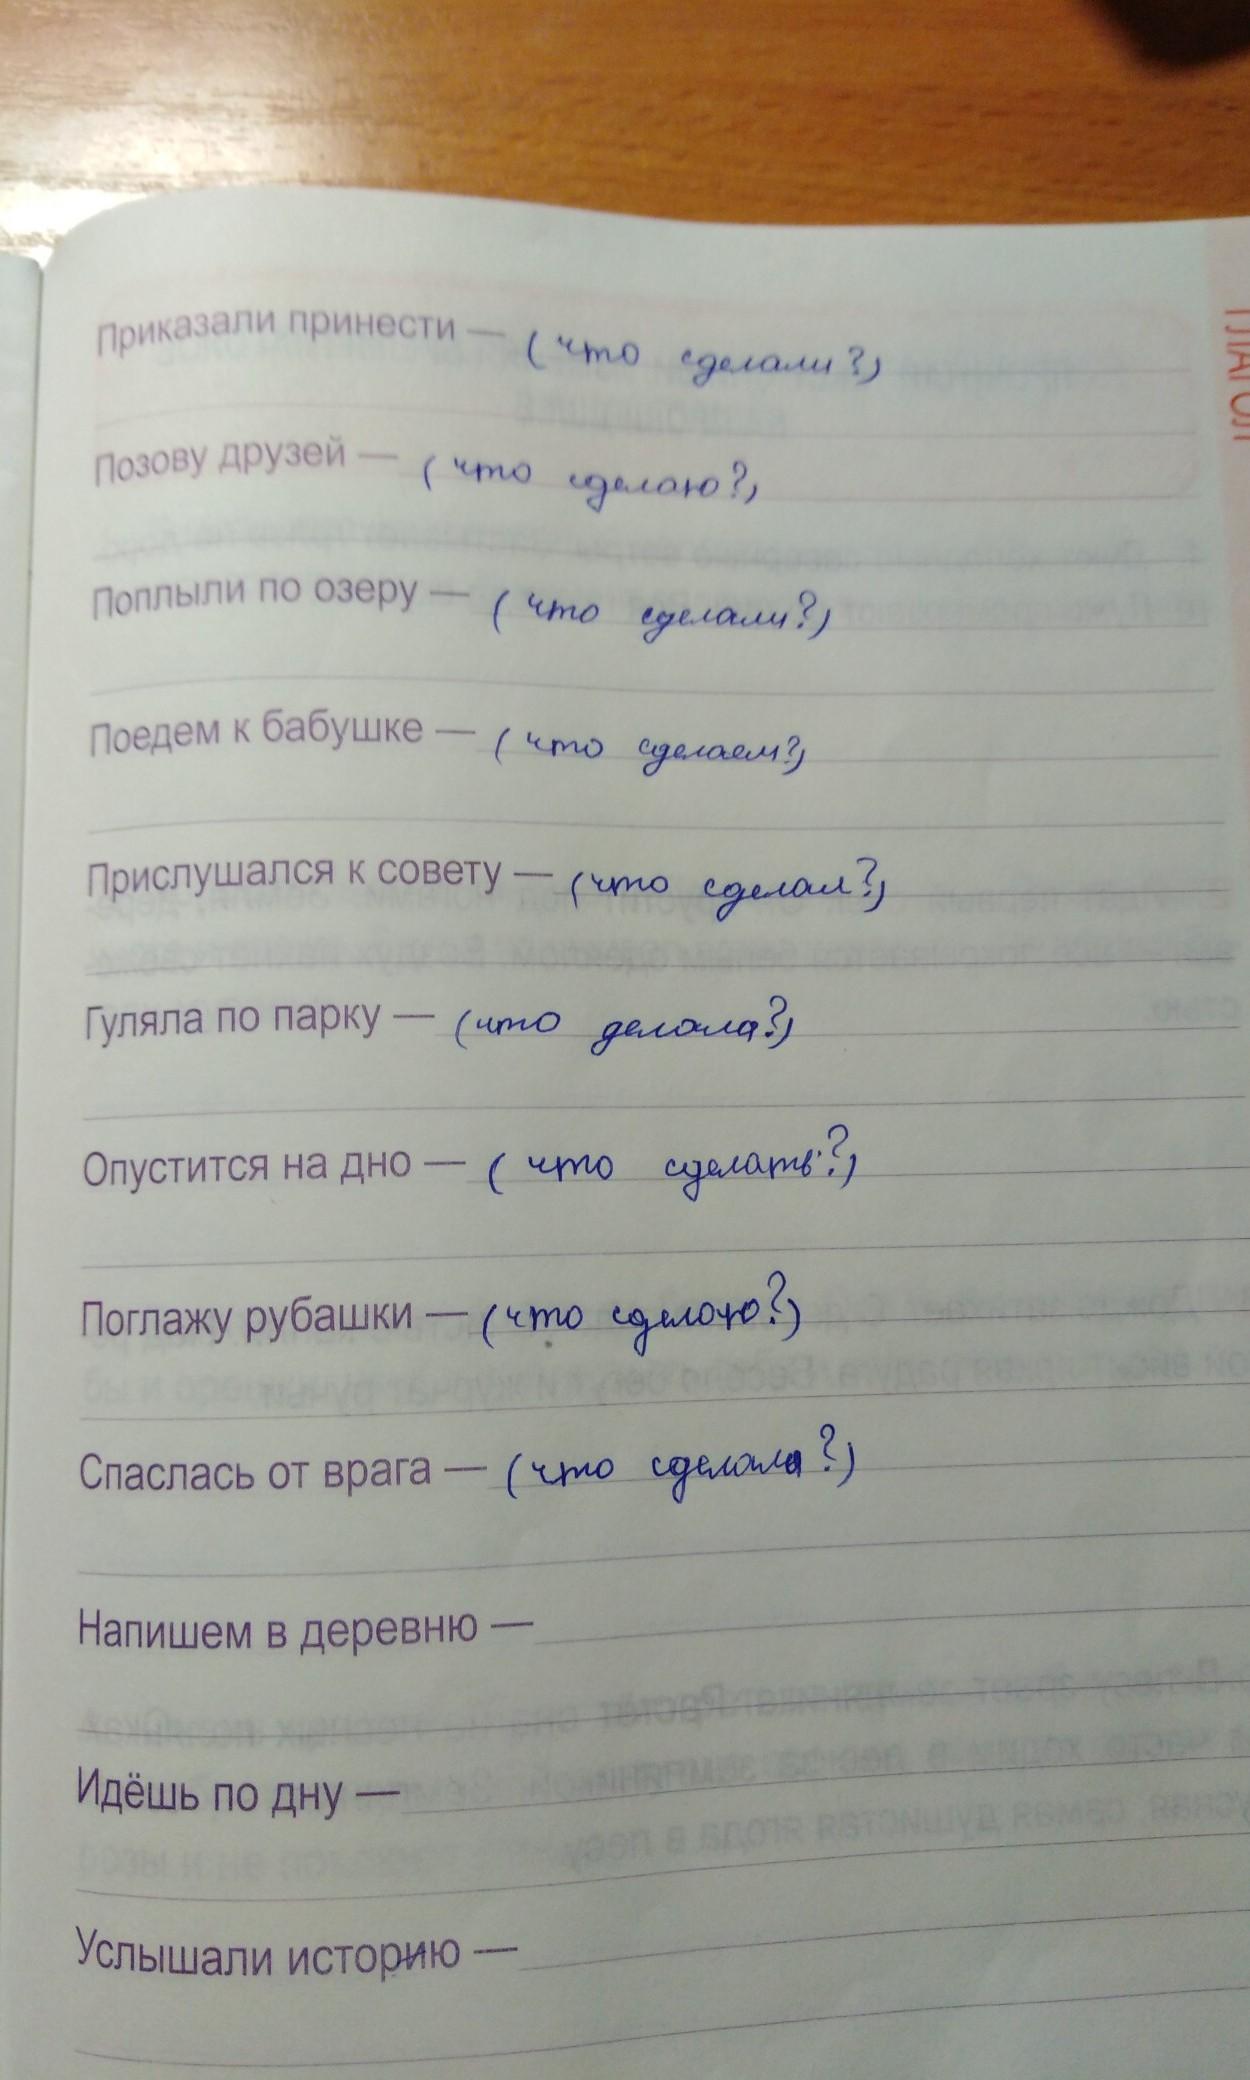 ГЛАГОЛ
Приказали принести — (что сделали?)
Позову друзей — (что сделаю?)
Поплыли по озеру — (что сделали?)
Поедем к бабушке — (что сделаем?)
Прислушался к совету — (что сделал?)
Гуляла по парку — (что делала?)
Опустится на дно — (что сделать?)
Поглажу рубашки — (что сделаю?)
Спаслась от врага — (что сделала?)
Напишем в деревню —
Идёшь по дну —
Услышали историю —